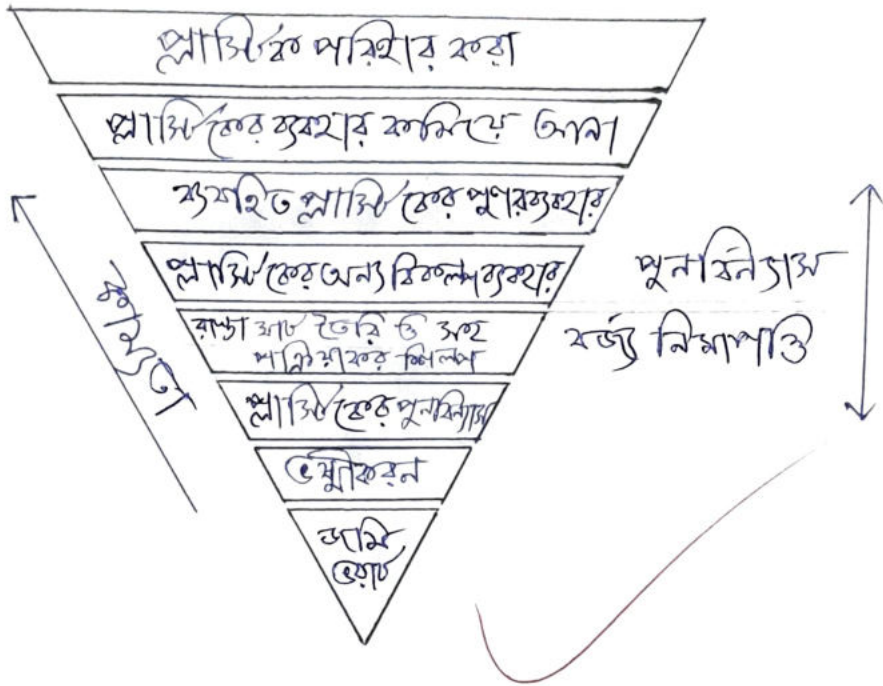 প্লাস্টিক পরিহার করা
প্লাস্টিকের ব্যবহার কমিয়ে আনা
ব্যবহিত প্লাস্টিকের পুণরব্যবহার
প্লাস্টিকের অন্য বিকল্প ব্যবহার
রাস্তা ঘাট তৈরি ও সহ
পক্রিয়াকর শিল্প
প্লাস্টিকের পুনর্বিন্যাস
ভষ্মীকরন
জমি
ভরাট
কাম্যতা
পুনর্বিন্যাস
বর্জ্য নিষ্পত্তি